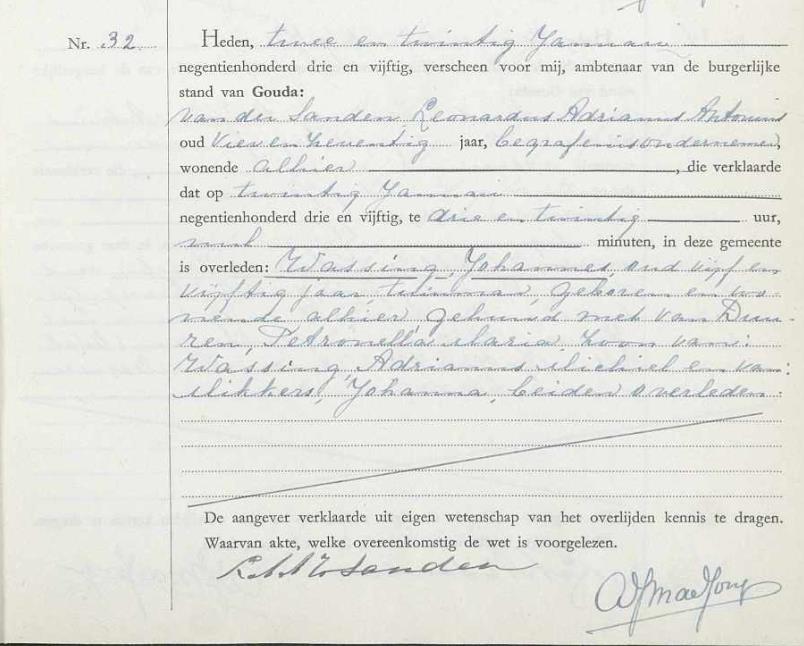 Nr. 32
Heden, twee en twintig Januari
negentienhonderd drie en vijftig, verscheen voor mij, ambtenaar van de burgerlijke
stand van Gouda:
van der Sanden Leonardus Adrianus Antonius
oud vier en zeventig jaar, begrafenisondernemer,
wonende alhier, die verklaarde
dat op twintig Januari
negentienhonderd drie en vijftig, te drie en twintig uur,
nul minuten, in deze gemeente
is overleden: Wassing, Johannes, oud vijf en
vijftig jaar, tuinman, geboren en wo-
nende alhier, gehuwd met van Duu-
ren, Petronella Maria zoon van:
Wassing, Adrianus Michiel en van:
Mikkers, Johanna, beiden overleden.
De aangever verklaarde uit eigen wetenschap van het overlijden kennis te dragen.
Waarvan akte, welke overeenkomstig de wet is voorgelezen.
Sanden